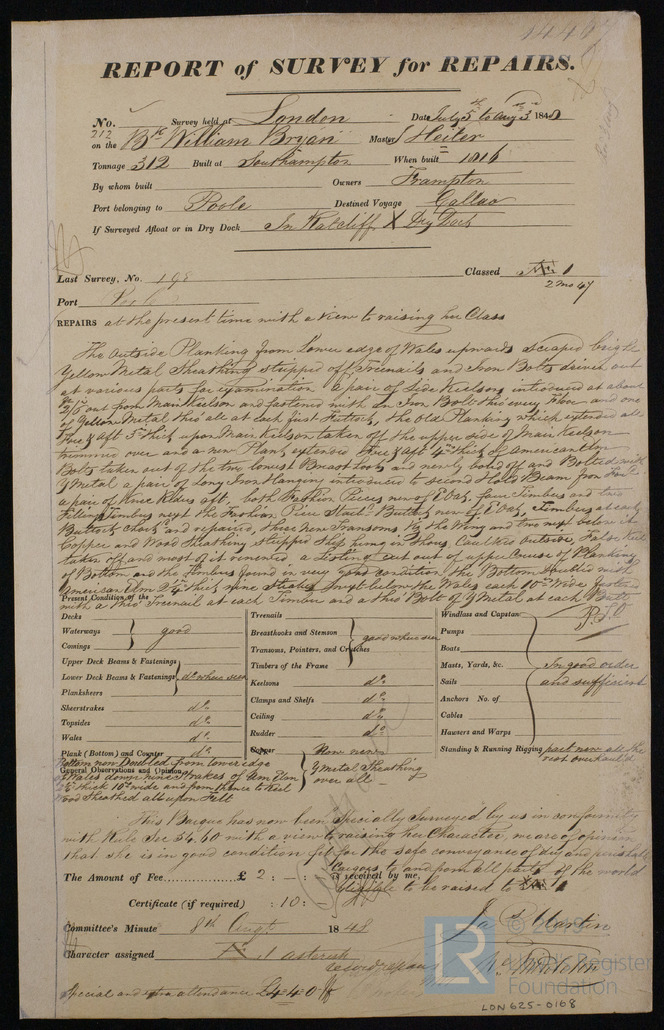 REPORT of SURVEY for REPAIRS.
No. Survey held at London Date July 5th to Aug 3rd 1848
212 on the Bk William Bryan Master Heiter
Tonnage 312 Built at Southampton When built 1816
By whom built Owners Frampton
Port belonging to Poole Destined Voyage Callao
If Surveyed Afloat or in Dry Dock In Ratcliff X Dry Dock
Last Survey, No. 198 Classed 1
2 mo 47
Port
REPAIRS at the present time with a view to raising her Class
The Outside Planking from Lower edge of Wales upwards scraped bright
Yellow Metal Sheathing stripped off, Treenails and Iron Bolts driven out
at various parts for examination a pair of Side Keelsons introduced at about
out from Main Keelson and fastened with an Iron Bolt thro' every Floor and one
of Yellow Metal thro' all at each first Futtock, the Old Planking which extended all
Fore & aft 5 in thick upon Main Keelson taken off the upper side of Main Keelson
trimmed over and a new Plank extended Fore & Aft 4 in thick of American Elm
Bolts taken out of the two lowest Breast hooks and newly bored off and Bolted with
Y Metal a pair of Long Iron Hanging introduced to second Hold Beam from
a pair of Knee Riders aft, both Fashion Pieces new of E Oak, four Timbers and two
Filling Timbers next the Fashion Piece Starbd Buttock new of E Oak, Timbers at early
Buttock and repaired, three new Transoms Viz the Wing and two next below it
Copper and Wood Sheathing stripped Ship hung in Caulked outside, False Keel
taken off and most of it renewed a Listing cut out of upper Course of Planking
of Bottom and the Timbers found in very good condition, the Bottom Doubled with
American Elm 2¼ thick, nine strakes next below the Wales each 10 in Wide fastened
with a thro' Treenail at each Timber and a thro' Bolt of Y Metal at each Butt
Present Condition of the
Decks
Waterways
Comings
good
Upper Deck Beams & Fastenings
Lower Deck Beams & Fastenings
do where seen
Planksheers
Sheerstrakes do
Topsides do
Wales do
Plank (Bottom) and Counter do
Treenails
Breasthooks and Stemson
Transoms, Pointers, and Crutches
good where seen
Timbers of the Frame
Keelsons do
Clamps and Shelfs do
Ceiling do
Rudder do
Copper Now new
Y Metal Sheathing
over all
Windlass and Capstan
Pumps
Boats
Masts, Yards, &c.
Sails
Anchors No. of
Cables
Hawsers and Warps
In good order
and sufficient
Standing & Running Rigging part new all the
rest overhauld
P.T.O
Bottom now Doubled from lower edge
General Observations and Opinion
of Wales down nine Strakes of Am Elm
2¼ thick 10 in wide and from thence to Keel
Wood Sheathed all upon Felt
This Barque has now been Specially Surveyed by us in conformity
with Rule Sec 54. 60 with a view to raising her Character, we are of opinion
that she is in good condition fit for the safe conveyance of dry and perishable
Cargoes to and from all parts of the world
The Amount of Fee £ 2 : – : is received by me,
Eligible to be raised to
Certificate (if required) : 10 :
Committee's Minute 8th Augt 1848
Character assigned 1 asterisk
record repairs
Jas Martin
Special and attendance £4.4.0
© 2018
LR
Lloyd's Register
Foundation
LON625-0168